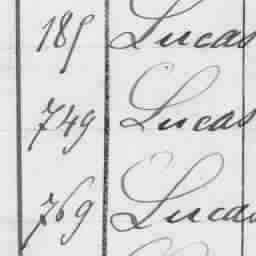 185 Lucas
749 Lucas
769 Lucas